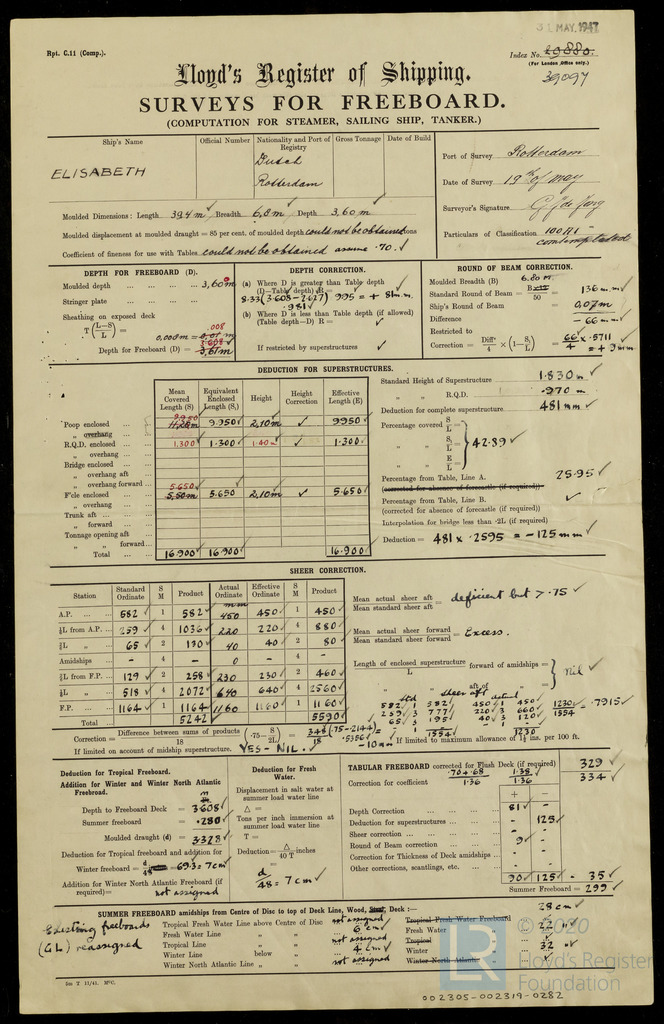 31 MAY. 1947
Rpt. C.11 (Comp.).
Index No. 29880.
(For London Office only.)
39097
Lloyd's Register of Shipping.
SURVEYS FOR FREEBOARD.
(COMPUTATION FOR STEAMER, SAILING SHIP, TANKER.)
Ship's Name Official Number Nationality and Port of Registry Gross Tonnage Date of Build
ELISABETH Dutch Rotterdam
Port of Survey Rotterdam
Date of Survey 19th of May
Surveyor's Signature
Particulars of Classification 100A1 contemplated
Moulded Dimensions: Length 39,4 m Breadth 6,8 m Depth 3,60 m
Moulded displacement at moulded draught = 85 per cent. of moulded depth could not be obtained tons
Coefficient of fineness for use with Tables could not be obtained assume .70.
DEPTH FOR FREEBOARD (D).
Moulded depth 3,600 m
Stringer plate
Sheathing on exposed deck
T (L–S/L) = 008
0,00m = 0,01 m
3.608
Depth for Freeboard (D) = 3,61 m
DEPTH CORRECTION.
(a) Where D is greater than Table depth
(D—Table depth) R =
8.33 (3.608 - 2.627) 995 = + 81 m.m.
.981
(b) Where D is less than Table depth (if allowed)
(Table depth—D) R =
If restricted by superstructures
ROUND OF BEAM CORRECTION.
Moulded Breadth (B) 6.80 m
Standard Round of Beam = B×12/50 136 m.m
Ship's Round of Beam = 0,07 m
Difference - 66 mm
Restricted to
Correction = Diff/4 × (1–S₁/L) = 66/4 × .5711 = + 9 mm
DEDUCTION FOR SUPERSTRUCTURES.
Mean Covered Length (S) Equivalent Enclosed Length (S₁) Height Height Correction Effective Length (E)
Poop enclosed 9.950 9.950 2,10 m 9950
„ overhang
R.Q.D. enclosed 1.300 1.300 1.40 m 1.300
„ overhang
Bridge enclosed
„ overhang aft
„ overhang forward
F'cle enclosed 5.650 5,50m 5.650 2,10 m 5.650
„ overhang
Trunk aft
„ forward
Tonnage opening aft
„ „ forward
Total 16.900 16.900 16.900
Standard Height of Superstructure 1.830 m
„ „ R.Q.D. .970 m
Deduction for complete superstructure 481 mm
Percentage covered S/L =
„ „ S₁/L = 42.89
„ „ E/L =
Percentage from Table, Line A. 25.95
(corrected for absence of forecastle (if required))
Percentage from Table, Line B.
(corrected for absence of forecastle (if required))
Interpolation for bridge less than ·2L (if required)
Deduction = 481 x .2595 = -125 mm
SHEER CORRECTION.
Station Standard Ordinate S M Product Actual Ordinate Effective Ordinate S M Product
A.P. 582 1 582 450 450 1 450
⅙L from A.P. 259 4 1036 220 220 4 880
⅓L „ 65 2 130 40 40 2 80
Amidships - 4 - 0 - 4 -
⅓L from F.P. 129 2 258 230 230 2 460
⅙L „ 518 4 2072 640 640 4 2560
F.P. 1164 1 1164 1160 1160 1 1160
Total 5242 5590
Mean actual sheer aft / Mean standard sheer aft = deficient but > .75
Mean actual sheer forward / Mean standard sheer forward = Excess.
Length of enclosed superstructure forward of amidships / L =
„ „ aft of „ = nil
std sheer aft actual
582 1 582 450 1 450
259 3 777 220 3 660
65 3 195 40 3 120
1554 1230
1230/1554 = .7915
Correction = Difference between sums of products/18 (·75–S/2L) = 348/18 (.75-.2144) = -10 mm
.5356
If limited on account of midship superstructure. YES - NIL.
If limited to maximum allowance of 1½ ins. per 100 ft.
Deduction for Tropical Freeboard.
Addition for Winter and Winter North Atlantic Freeboard.
m
Depth to Freeboard Deck = 3608
Summer freeboard = .280
Moulded draught (d) = 3328
Deduction for Tropical freeboard and addition for
Winter freeboard = d/48 = 69.3 = 7 cm
Addition for Winter North Atlantic Freeboard (if required) = not assigned
Deduction for Fresh Water.
Displacement in salt water at summer load water line
Δ =
Tons per inch immersion at summer load water line
T =
Deduction = Δ/40 T inches
d/48 = 7 cm
TABULAR FREEBOARD corrected for Flush Deck (if required) 329
Correction for coefficient .70+.68/1.36 1.38/1.36 334
+ -
Depth Correction 81
Deduction for superstructures 125
Sheer correction -
Round of Beam correction 9
Correction for Thickness of Deck amidships -
Other corrections, scantlings, etc.
90 125 - 35
Summer Freeboard = 299
SUMMER FREEBOARD amidships from Centre of Disc to top of Deck Line, Wood, Steel, Deck:— 28 cm
Existing freeboards (GL) reassigned
Tropical Fresh Water Line above Centre of Disc not assigned Tropical Fresh Water Freeboard
Fresh Water Line „ „ 6 cm Fresh Water „ 22 „
Tropical Line „ „ not assigned Tropical „
Winter Line below „ 4 cm Winter „ 32 „
Winter North Atlantic Line „ „ not assigned Winter North Atlantic „
© 2020
LR
Lloyd's Register
Foundation
002305-002319-0282